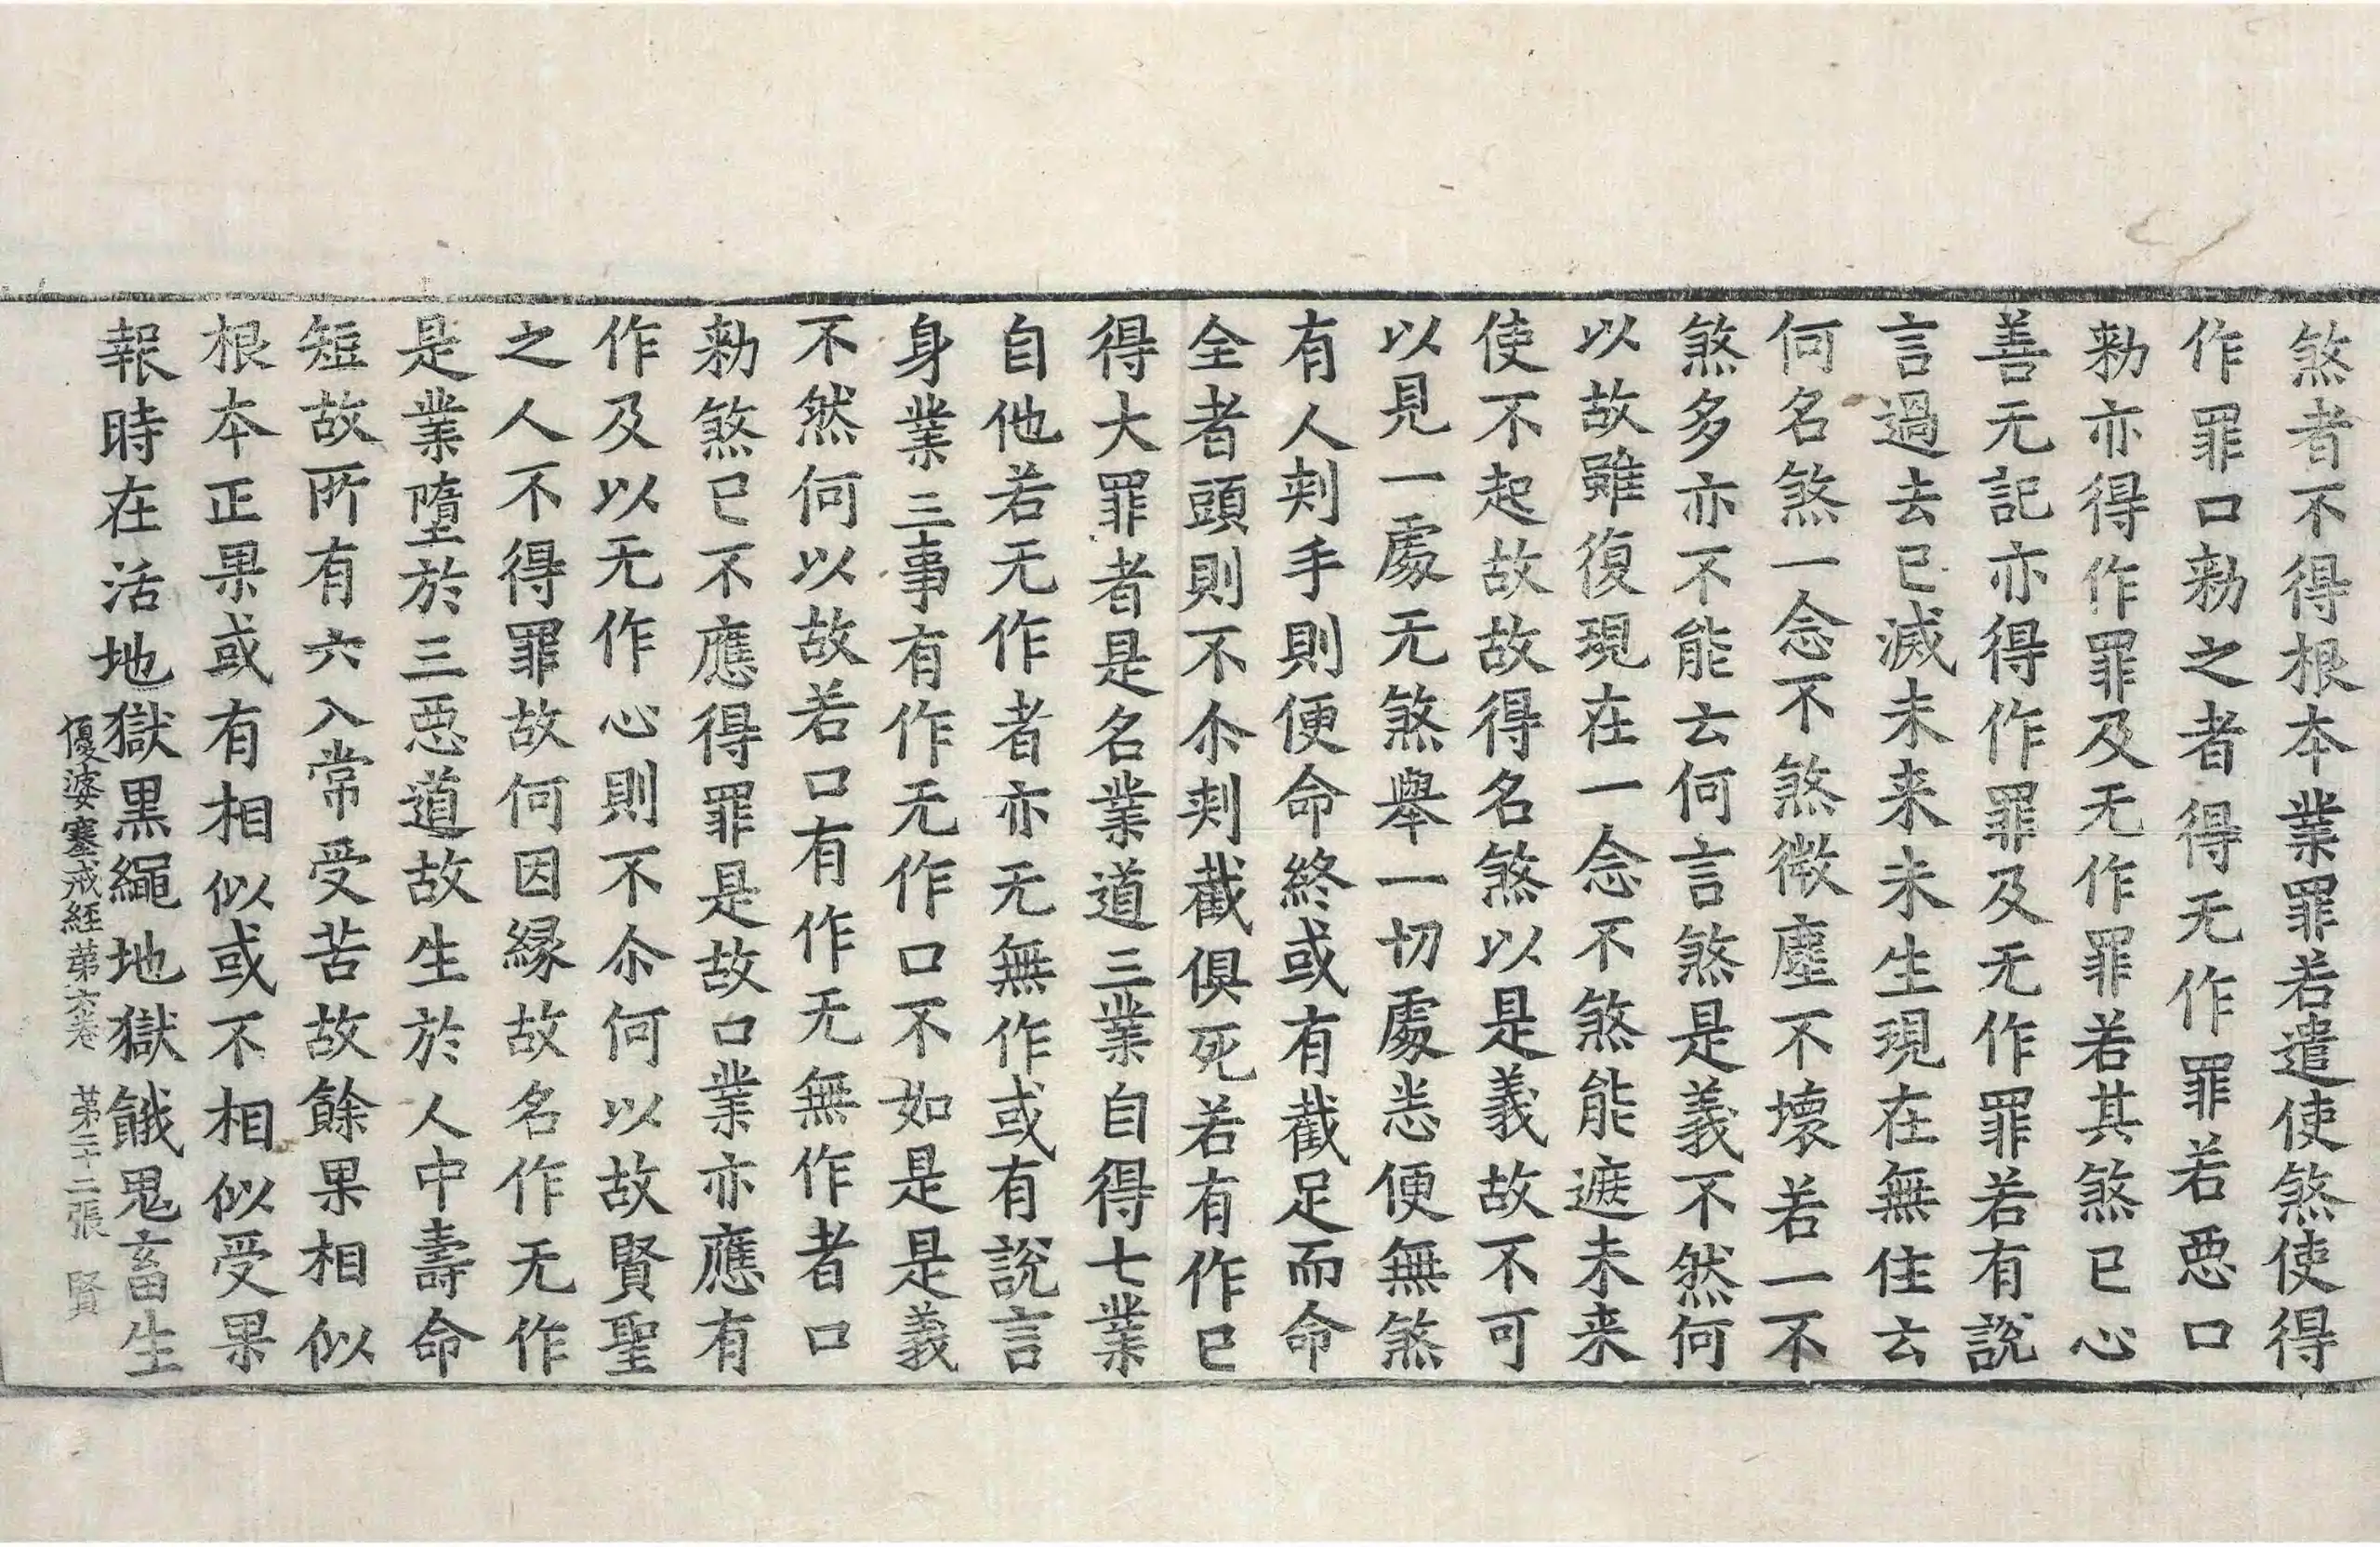 煞者不得根本業罪若遣使煞使得
作罪口勑之者得无作罪若惡口
勑亦得作罪及无作罪若其煞已心
善无記亦得作罪及无作罪若有說
言過去已滅未来未生現在無住云
何名煞一念不煞微塵不壞若一不
煞多亦不能云何言煞是義不然何
以故雖復現在一念不煞能遮未来
使不起故故得名煞以是義故不可
以見一處无煞舉一切處悉便無煞
有人刾手則便命終或有截足而命
全者頭則不尒刾截俱死若有作已
得大罪者是名業道三業自得七業
自他若无作者亦无無作或有說言
身業三事有作无作口不如是是義
不然何以故若口有作无無作者口
勑煞已不應得罪是故口業亦應有
作及以无作心則不尒何以故賢聖
之人不得罪故何因縁故名作无作
是業墮於三惡道故生於人中壽命
短故所有六入常受苦故餘果相似
根本正果或有相似或不相似受果
報時在活地獄黑繩地獄餓鬼畜生
優婆塞戒經苐六卷 苐二十二張 賢